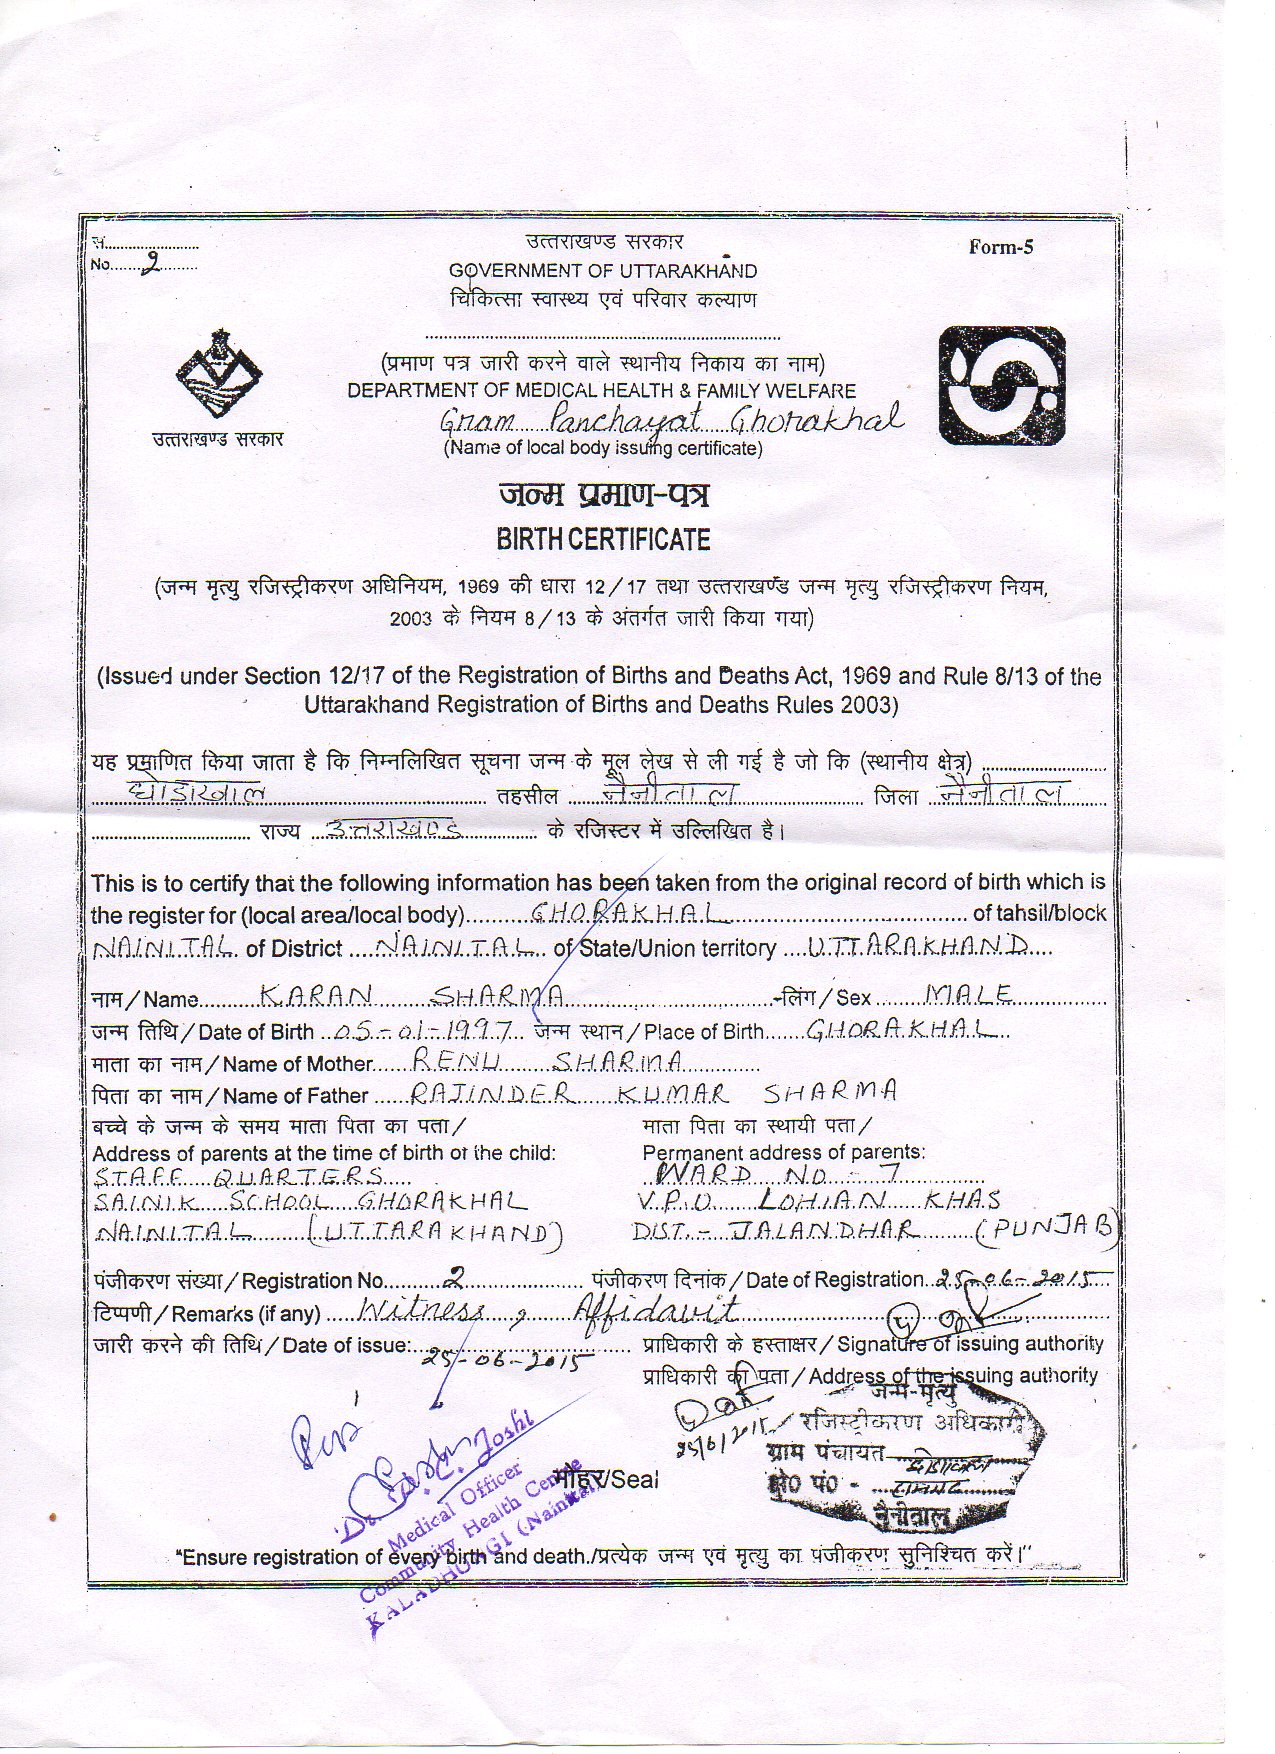 सं........................
No........2..........
उत्तराखण्ड सरकार
Form-5
GOVERNMENT OF UTTARAKHAND
चिकित्सा स्वास्थ्य एवं परिवार कल्याण
(प्रमाण पत्र जारी करने वाले स्थानीय निकाय का नाम)
DEPARTMENT OF MEDICAL HEALTH & FAMILY WELFARE
Gram Panchayat Ghorakhal
(Name of local body issuing certificate)
उत्तराखण्ड सरकार
जन्म प्रमाण-पत्र
BIRTH CERTIFICATE
(जन्म मृत्यु रजिस्ट्रीकरण अधिनियम, 1969 की धारा 12/17 तथा उत्तराखण्ड जन्म मृत्यु रजिस्ट्रीकरण नियम,
2003 के नियम 8/13 के अंतर्गत जारी किया गया)
(Issued under Section 12/17 of the Registration of Births and Deaths Act, 1969 and Rule 8/13 of the
Uttarakhand Registration of Births and Deaths Rules 2003)
यह प्रमाणित किया जाता है कि निम्नलिखित सूचना जन्म के मूल लेख से ली गई है जो कि (स्थानीय क्षेत्र)
घोड़ाखाल तहसील नैनीताल जिला नैनीताल
राज्य उत्तराखण्ड के रजिस्टर में उल्लिखित है।
This is to certify that the following information has been taken from the original record of birth which is
the register for (local area/local body) GHORAKHAL of tahsil/block
NAINITAL of District NAINITAL of State/Union territory UTTARAKHAND
नाम/Name KARAN SHARMA लिंग/Sex MALE
जन्म तिथि/Date of Birth 05-01-1997 जन्म स्थान/Place of Birth GHORAKHAL
माता का नाम/Name of Mother RENU SHARMA
पिता का नाम/Name of Father RAJINDER KUMAR SHARMA
बच्चे के जन्म के समय माता पिता का पता/ माता पिता का स्थायी पता/
Address of parents at the time of birth of the child: Permanent address of parents:
STAFF QUARTERS WARD NO - 7
SAINIK SCHOOL GHORAKHAL V.P.O LOHIAN KHAS
NAINITAL (UTTARAKHAND) DIST. - JALANDHAR (PUNJAB)
पंजीकरण संख्या/Registration No. 2 पंजीकरण दिनांक/Date of Registration 25-06-2015
टिप्पणी/Remarks (if any) Witness, Affidavit
जारी करने की तिथि/Date of issue: 25-06-2015 प्राधिकारी के हस्ताक्षर/Signature of issuing authority
प्राधिकारी का पता/Address of the issuing authority
25/6/2015
जन्म-मृत्यु
रजिस्ट्रीकरण अधिकारी
ग्राम पंचायत घोड़ाखाल
नैनीताल
मोहर/Seal
Joshi
Medical Officer
Community Health Centre
KALADHUNGI (Nainital)
"Ensure registration of every birth and death./प्रत्येक जन्म एवं मृत्यु का पंजीकरण सुनिश्चित करें।"